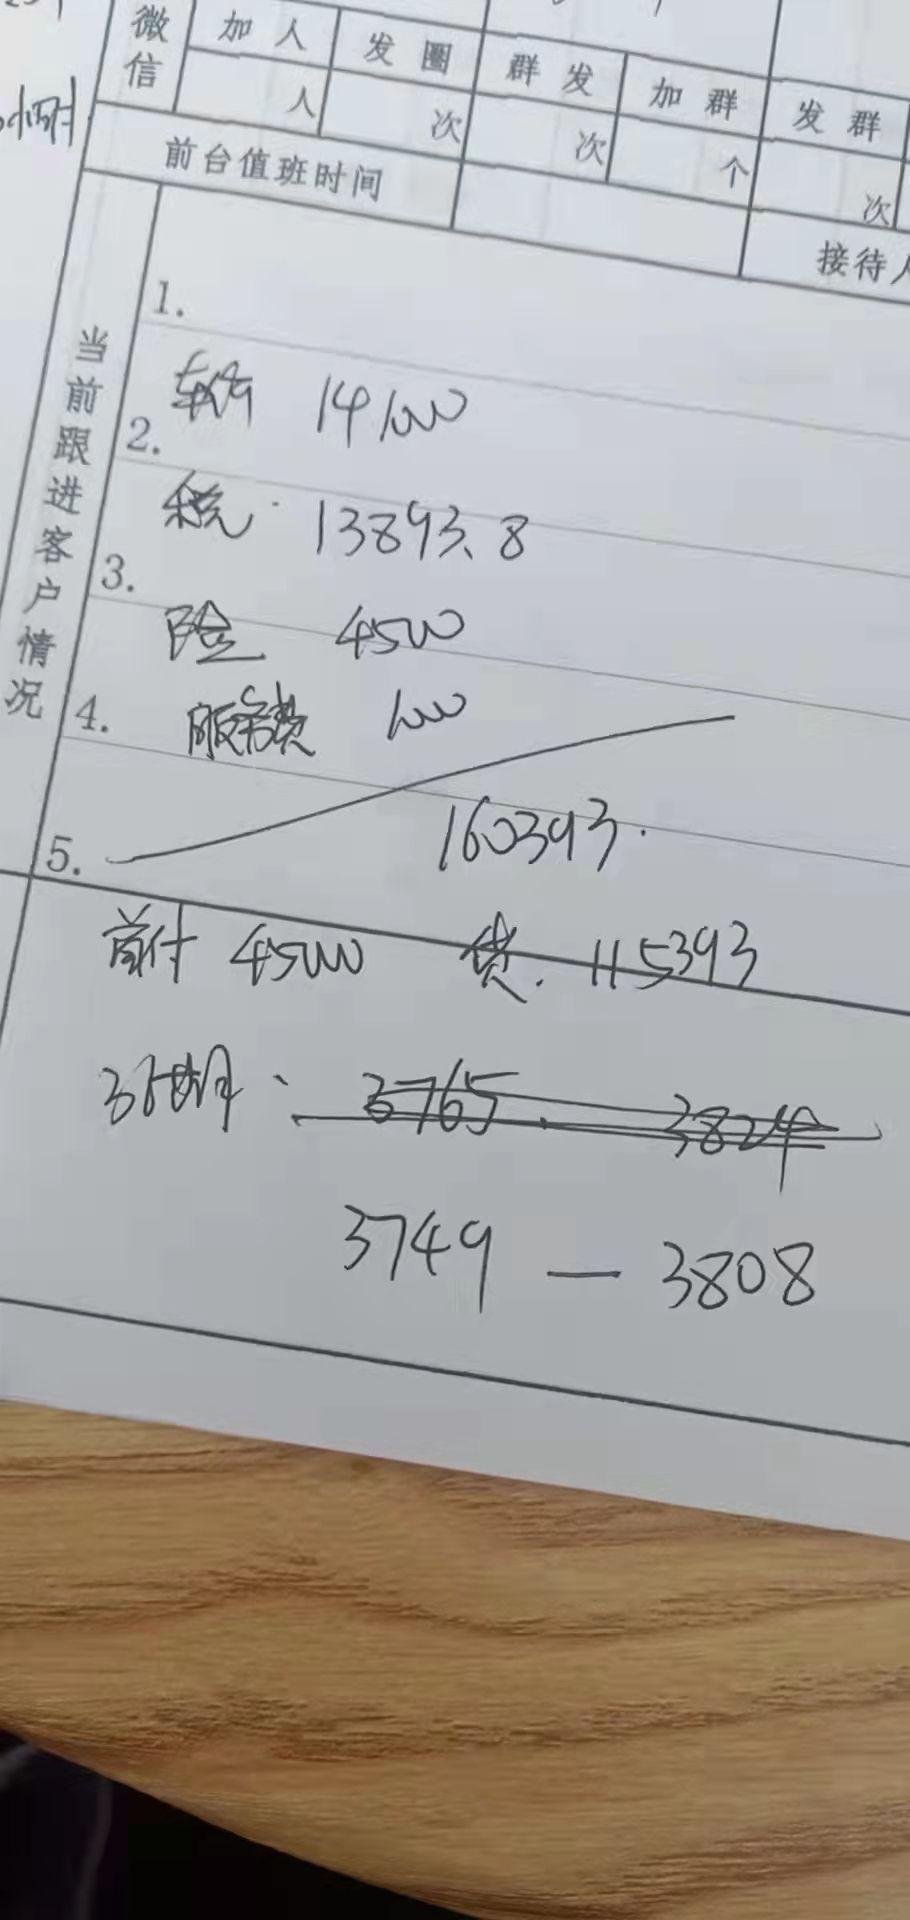 微信 加人 发圈 群发 加群 发群
人 次 次 个 次
前台值班时间
接待人
当前跟进客户情况
1.
车价 141000
2.
税. 13893.8
3.
险 4500
4. 服务费 1000
160393.
5.
首付 45000 贷. 115393
36期、 3765 3824
3749 — 3808